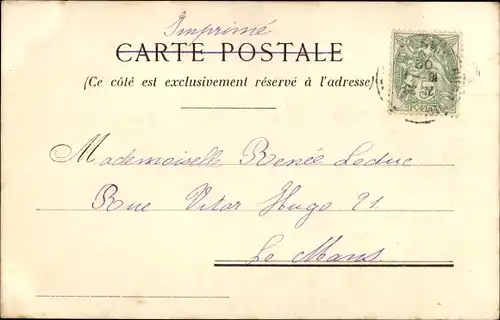 Imprimé
CARTE POSTALE
(Ce côté est exclusivement réservé à l'adresse)
Mademoiselle Renée Leduc
Rue Victor Hugo 21
Le Mans